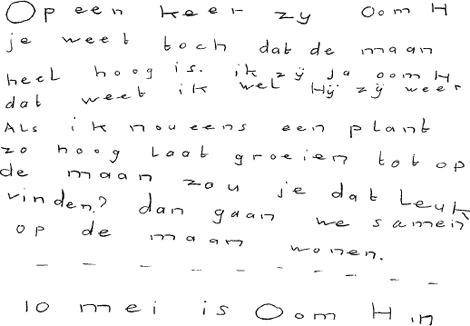 Op een keer zy oom H
je weet toch dat de maan
heel hoog is. ik zÿ ja oom H
dat weet ik wel Hÿ zÿ weer
ALs ik nou eens een plant
zo hoog Laat groeien tot op
de maan zou je dat Leuk
vinden? dan gaan we samen
op de maan wonen.
- - - - - - - - - -
10 mei is Oom H in